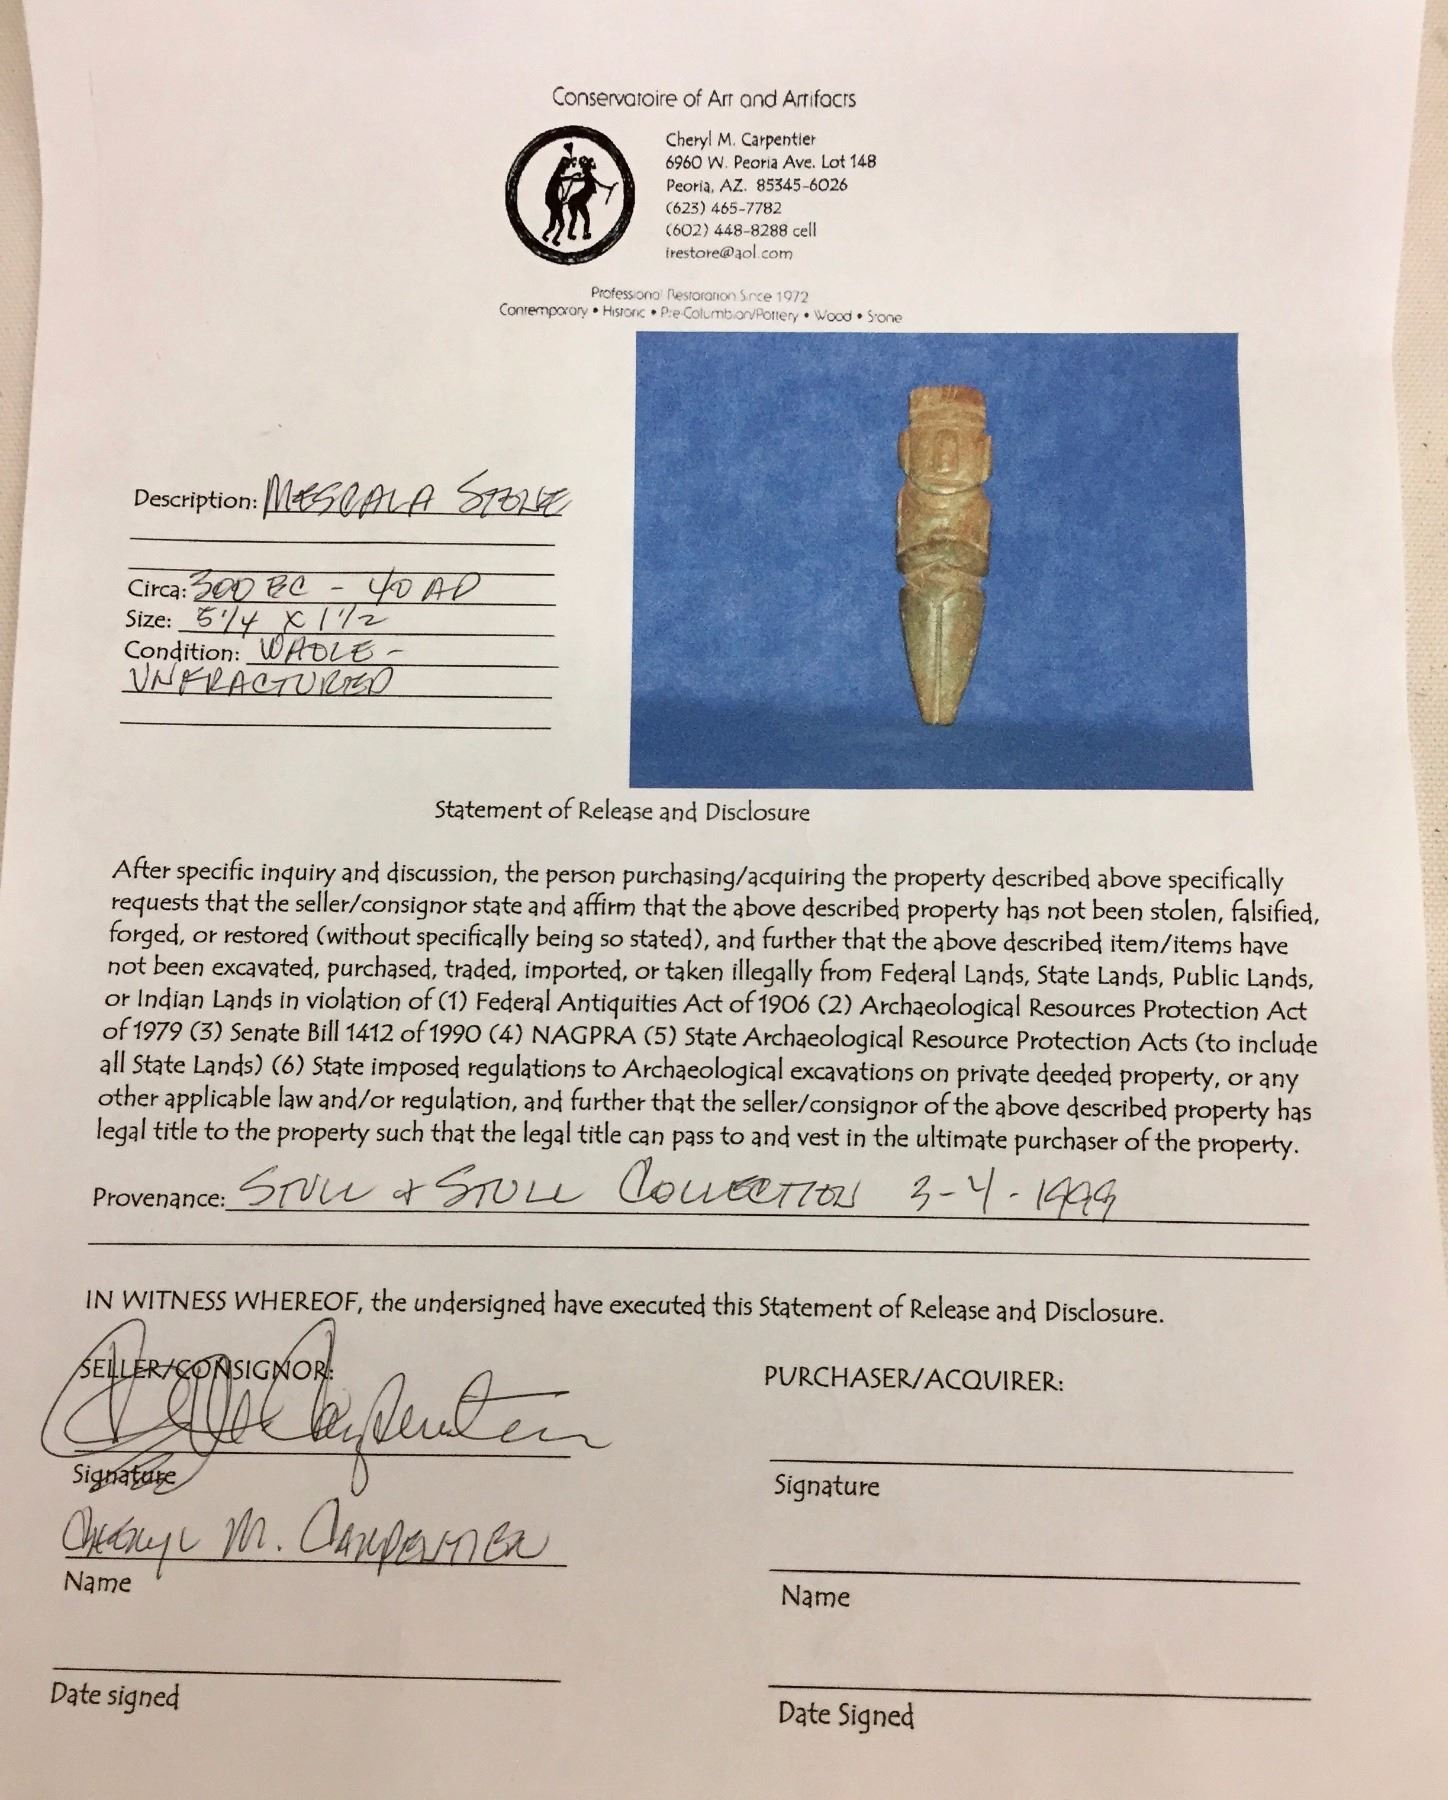 Conservatoire of Art and Artifacts
Cheryl M. Carpentier
6960 W. Peoria Ave. Lot 148
Peoria, AZ. 85345-6026
(623) 465-7782
(602) 448-8288 cell
irestore@aol.com
Professional Restoration Since 1972
Contemporary • Historic • Pre-Columbian/Pottery • Wood • Stone
Description: MESCALA STONE
Circa: 300 BC - 40 AD
Size: 5 1/4 X 1 1/2
Condition: WHOLE -
UNFRACTURED
Statement of Release and Disclosure
After specific inquiry and discussion, the person purchasing/acquiring the property described above specifically
requests that the seller/consignor state and affirm that the above described property has not been stolen, falsified,
forged, or restored (without specifically being so stated), and further that the above described item/items have
not been excavated, purchased, traded, imported, or taken illegally from Federal Lands, State Lands, Public Lands,
or Indian Lands in violation of (1) Federal Antiquities Act of 1906 (2) Archaeological Resources Protection Act
of 1979 (3) Senate Bill 1412 of 1990 (4) NAGPRA (5) State Archaeological Resource Protection Acts (to include
all State Lands) (6) State imposed regulations to Archaeological excavations on private deeded property, or any
other applicable law and/or regulation, and further that the seller/consignor of the above described property has
legal title to the property such that the legal title can pass to and vest in the ultimate purchaser of the property.
Provenance: STULL & STULL COLLECTION 3-4-1999
IN WITNESS WHEREOF, the undersigned have executed this Statement of Release and Disclosure.
SELLER/CONSIGNOR:
PURCHASER/ACQUIRER:
Carpentier
Signature
Signature
CHERYL M. CARPENTIER
Name
Name
Date signed
Date Signed